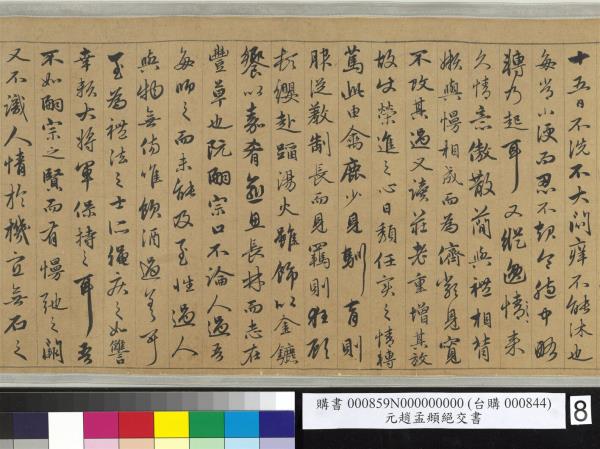 十五日不洗不大悶癢不能沐也
每常小便而忍不起令胞中略
轉乃起耳又縱逸情來
久情意傲散簡與禮相背
嬾與慢相成而為儕類見寬
不攻其過又讀莊老重增其放
故使榮進之心日頹任實之情轉
篤此由禽鹿少見馴育則
服從教制長而見羈則狂顧
頓纓赴蹈湯火雖飾以金鑣
饗以嘉肴逾思長林而志在
豐草也阮嗣宗口不論人過吾
每師之而未能及至性過人
與物無傷唯飲酒過差耳
至為禮法之士所繩疾之如讎
幸賴大將軍保持之耳吾
不如嗣宗之賢而有慢弛之闕
又不識人情於機宜無石之
購書 000859N000000000 (台購 000844)
元趙孟頫絕交書
8